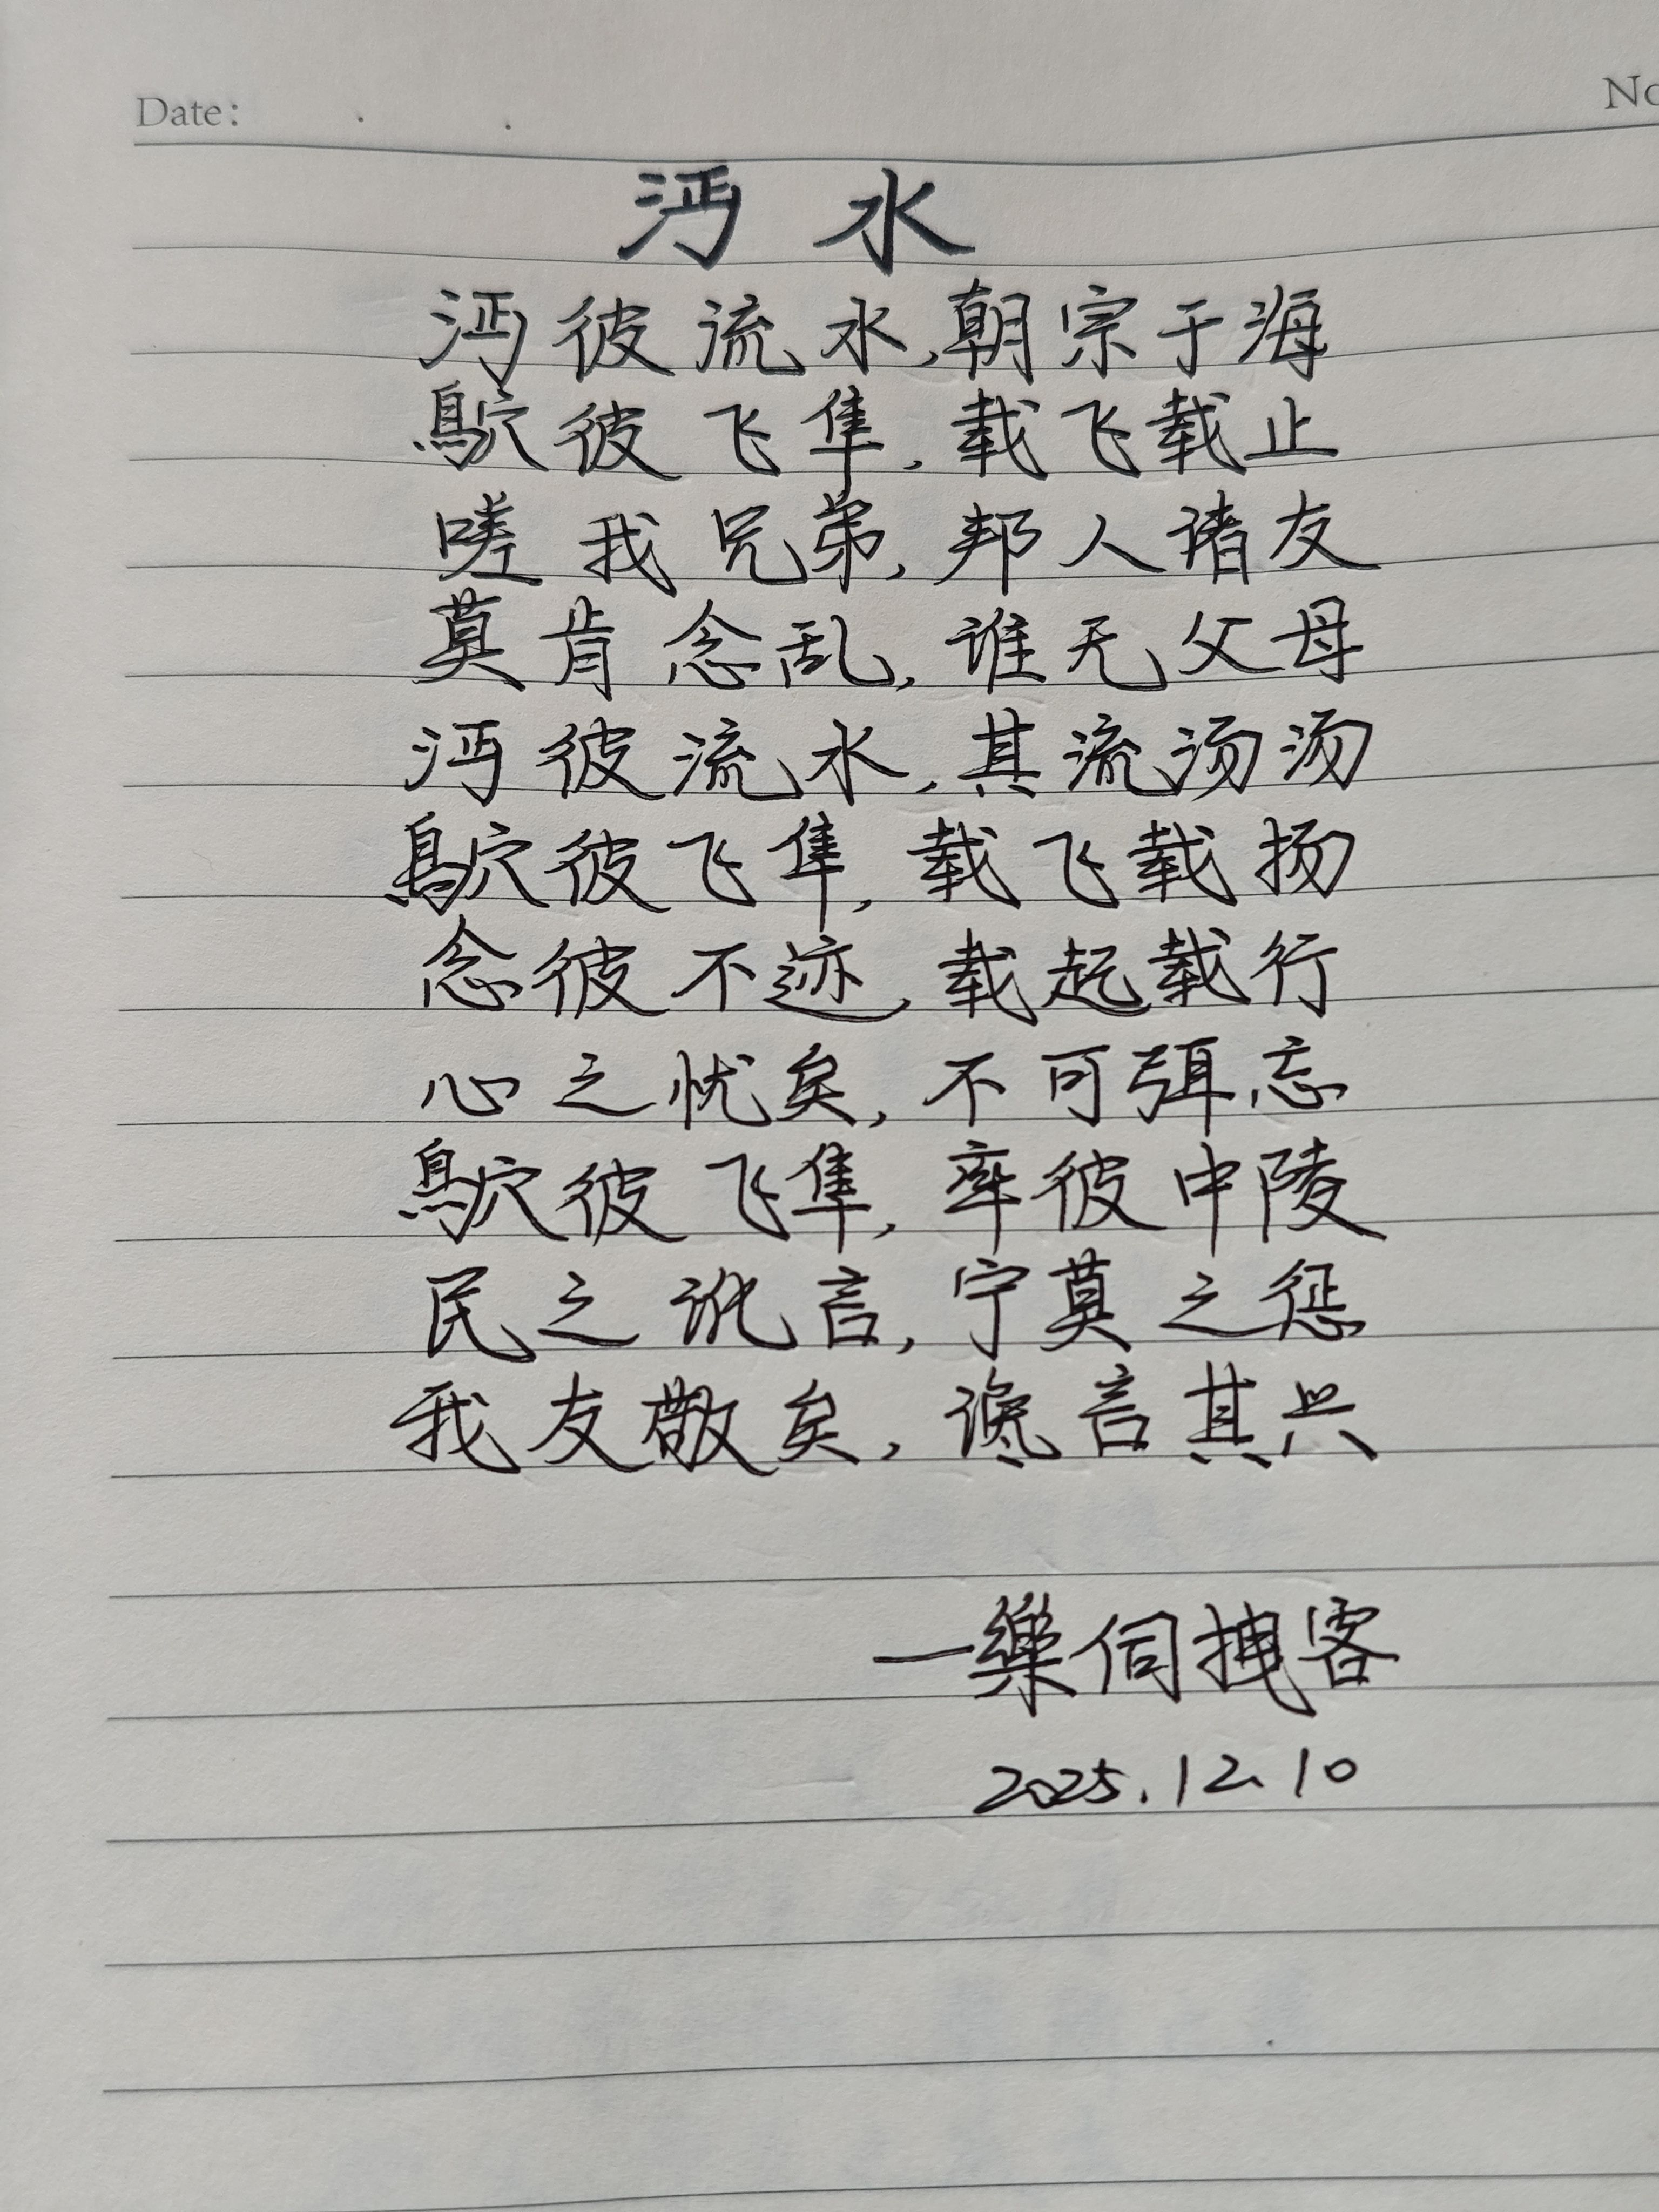 Date: . .
No
沔水
沔彼流水,朝宗于海
鴥彼飞隼,载飞载止
嗟我兄弟,邦人诸友
莫肯念乱,谁无父母
沔彼流水,其流汤汤
鴥彼飞隼,载飞载扬
念彼不迹,载起载行
心之忧矣,不可弭忘
鴥彼飞隼,率彼中陵
民之讹言,宁莫之惩
我友敬矣,谗言其兴
一樂伺拽客
2025.12.10